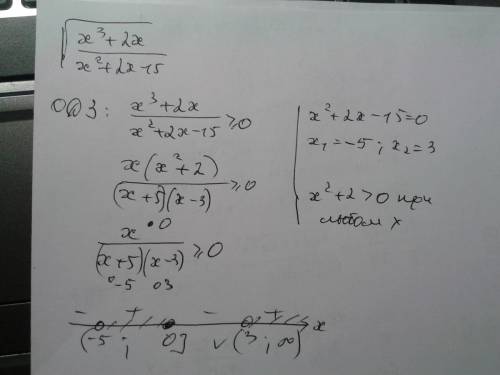 √((x³+2x)/(x²+2x-15))
ОДЗ: (x³+2x)/(x²+2x-15) ≥ 0
x(x²+2)/((x+5)(x-3)) ≥ 0
x/((x+5)(x-3)) ≥ 0
•0
°-5 °3
- + - + x
(-5 ; 0] ∨ (3 ; ∞)
x²+2x-15=0
x₁=-5 ; x₂=3
x²+2>0 при
любом x